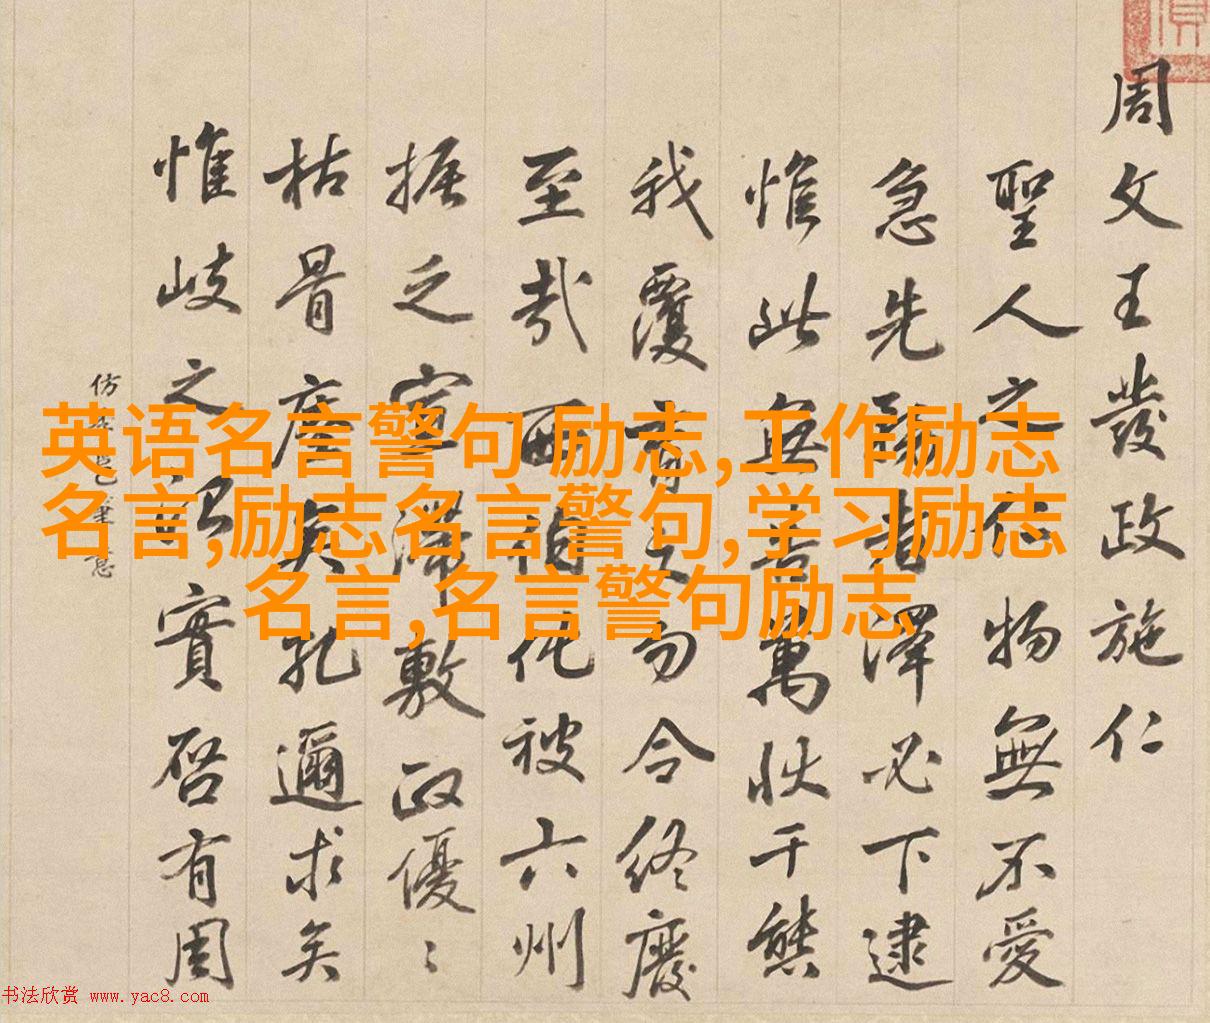 周文王發政施仁
聖人之物無不愛
急先澤必下逮
惟此無告萬狀千態
我覆育之勿令終廢
至哉西伯化被六州
振之敷政優〻
枯骨矣孔邇求矣
惟岐之實啓有周
仿意
英语名言警句 励志,工作励志
名言,励志名言警句,学习励志
名言,名言警句励志
书法欣赏 www.yac8.com